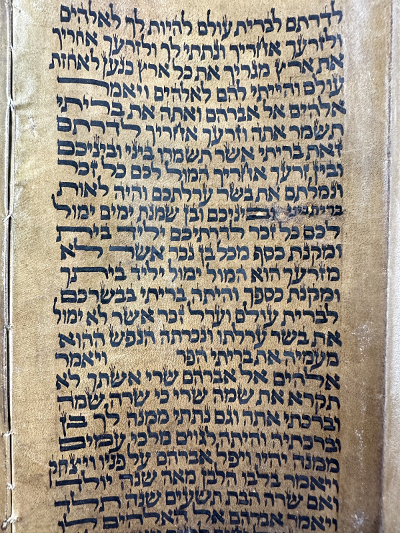 לדרתם לברית עולם להיות לך לאלהים
ולזרעך אחריך ונתתי לך ולזרעך אחריך
את ארץ מגריך את כל ארץ כנען לאחזת
עולם והייתי להם לאלהים ויאמר
אלהים אל אברהם ואתה את בריתי
תשמר אתה וזרעך אחריך לדרתם
זאת בריתי אשר תשמרו ביני וביניכם
ובין זרעך אחריך המול לכם כל זכר
ונמלתם את בשר ערלתכם והיה לאות
ברית ביני וביניכם ובן שמנת ימים ימול
לכם כל זכר לדרתיכם יליד בית
ומקנת כסף מכל בן נכר אשר לא
מזרעך הוא המול ימול יליד ביתך
ומקנת כספך והיתה בריתי בבשרכם
לברית עולם וערל זכר אשר לא ימול
את בשר ערלתו ונכרתה הנפש ההוא
מעמיה את בריתי הפר ויאמר
אלהים אל אברהם שרי אשתך לא
תקרא את שמה שרי כי שרה שמה
וברכתי אתה וגם נתתי ממנה לך בן
וברכתיה והיתה לגוים מלכי עמים
ממנה יהיו ויפל אברהם על פניו ויצחק
ויאמר בלבו הלבן מאה שנה יולד
ואם שרה הבת תשעים שנה תלד
ויאמר אברהם אל האלהים לו